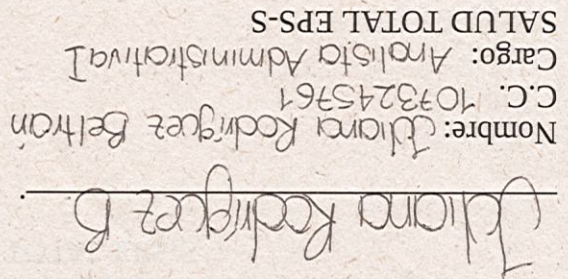 Juliana Rodríguez B
Nombre: Juliana Rodríguez Beltrán
C.C. 1073245761
Cargo: Analista Administrativa I
SALUD TOTAL EPS-S